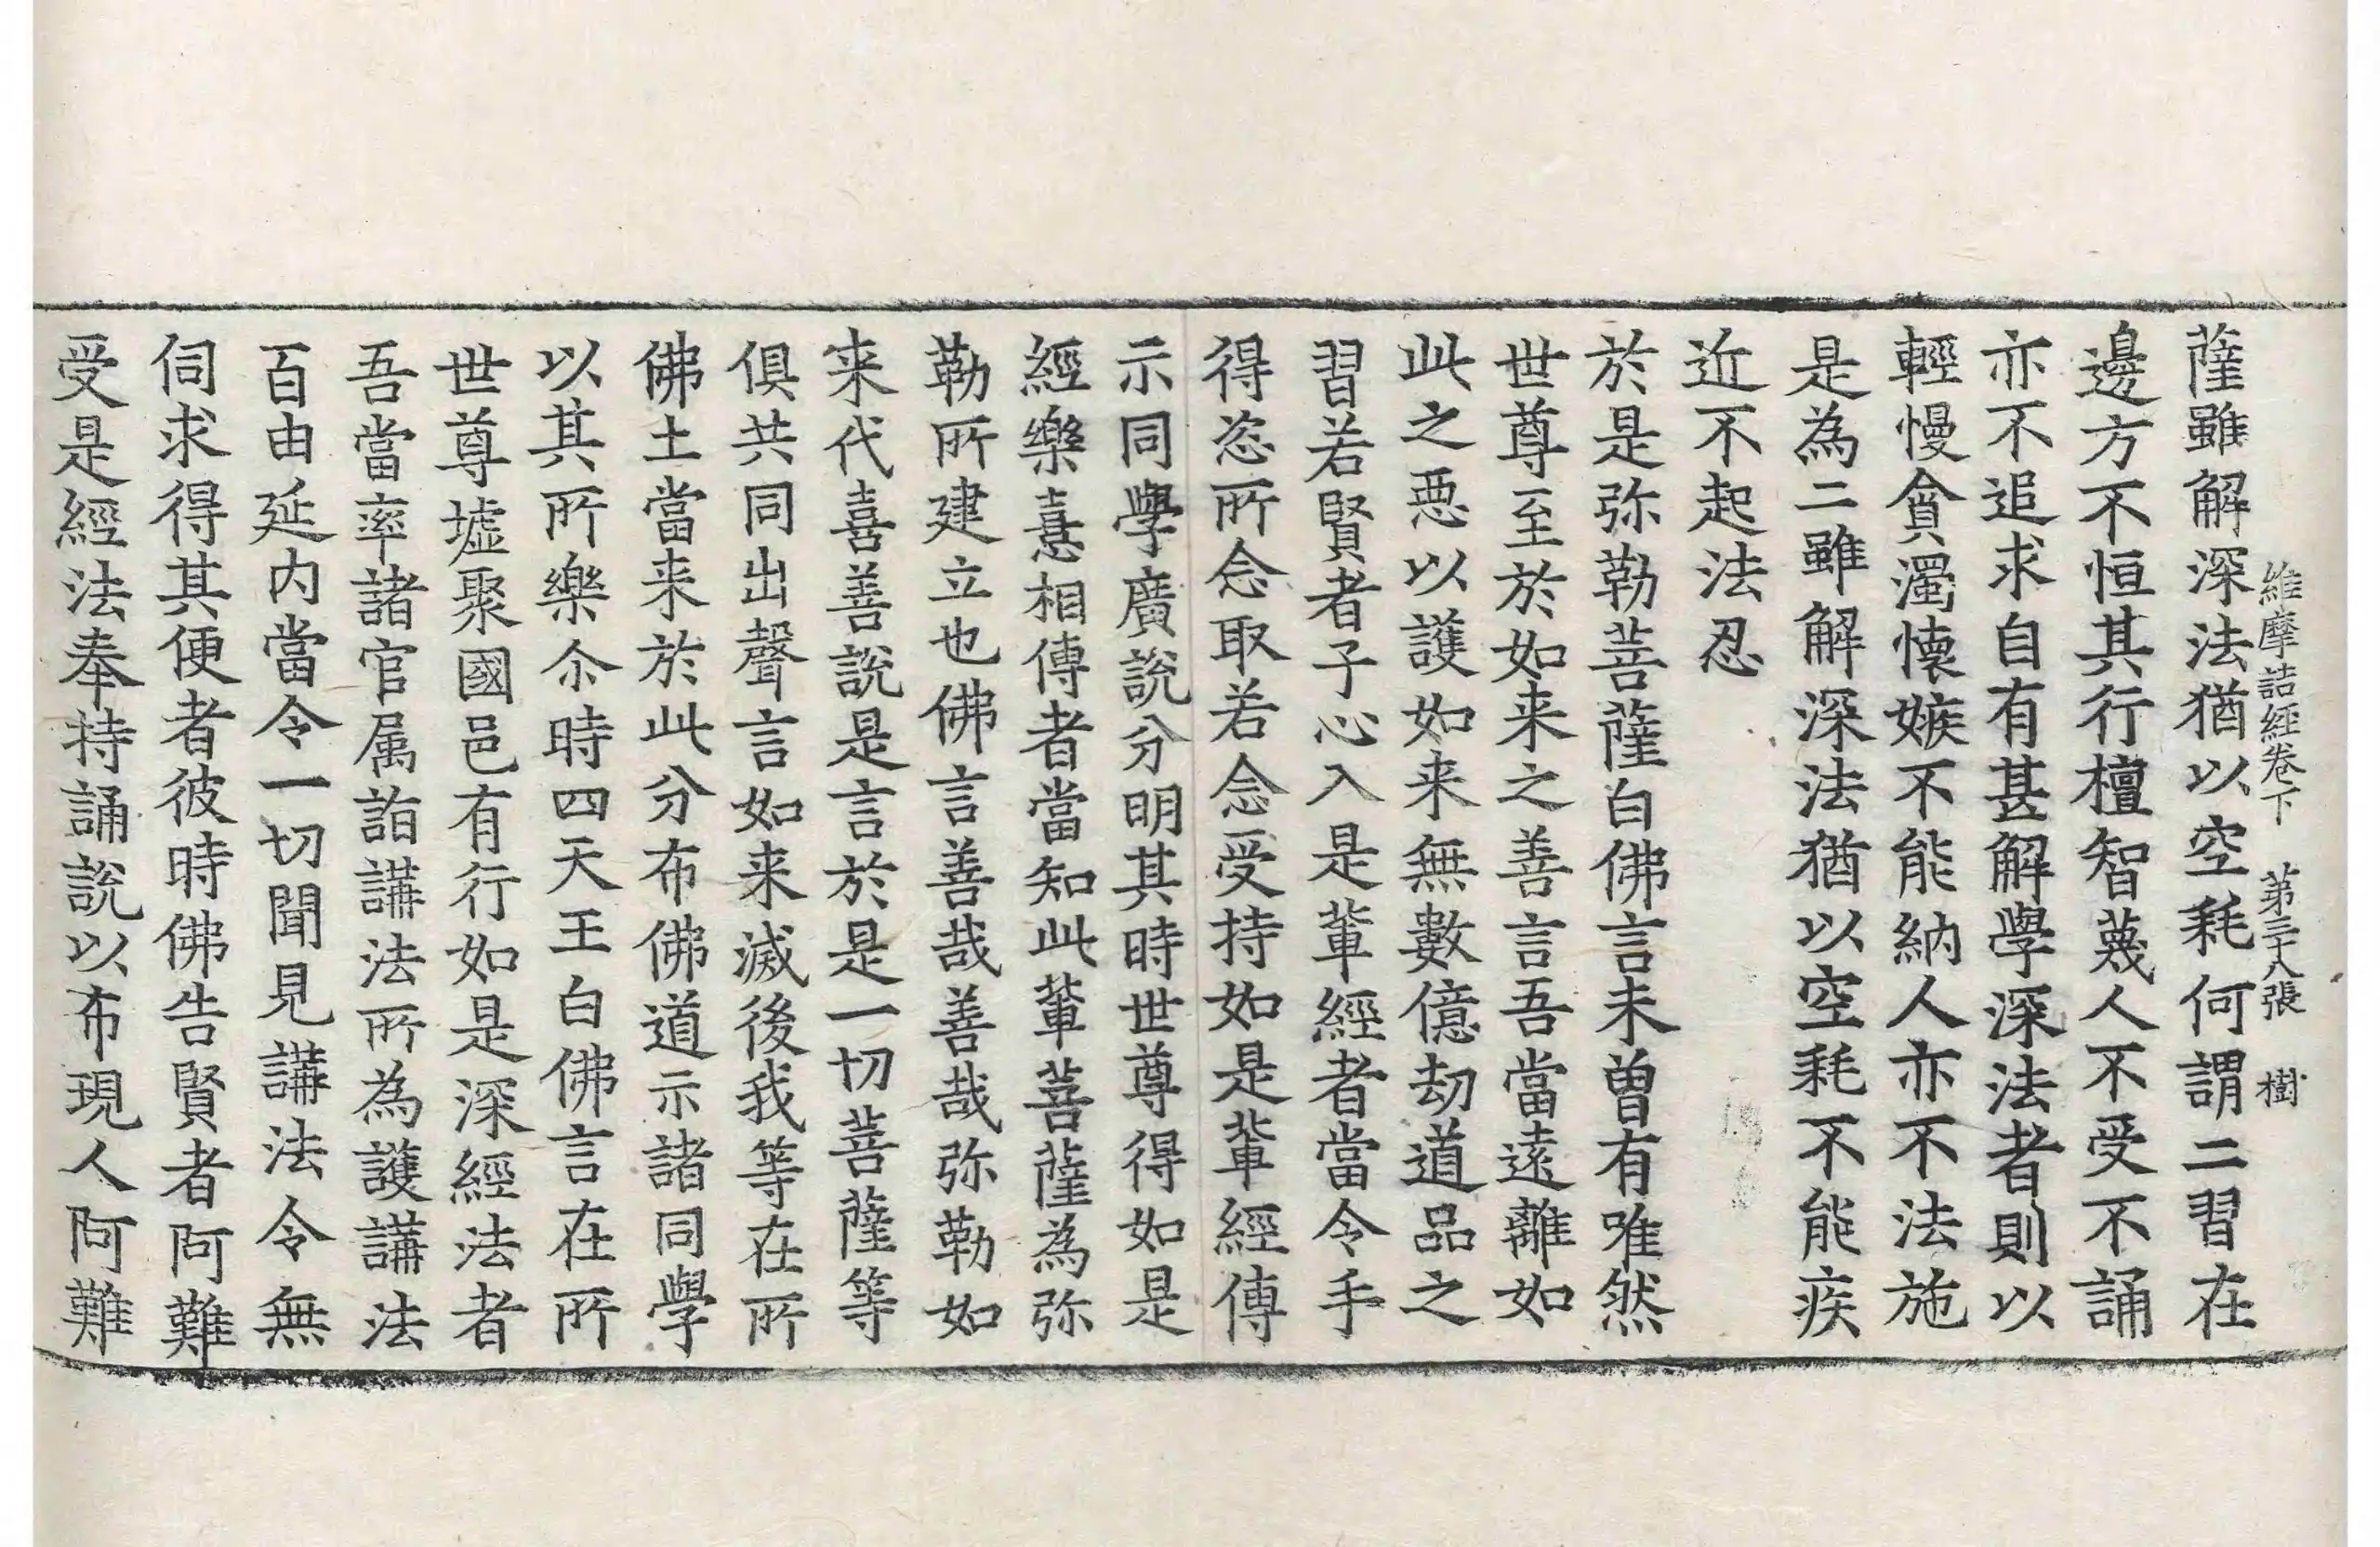 維摩詰經卷下　第三十八張　樹
薩雖解深法猶以空耗何謂二習在
邊方不恒其行檀智蔑人不受不誦
亦不追求自有甚解學深法者則以
輕慢貪濁懷嫉不能納人亦不法施
是為二雖解深法猶以空耗不能疾
近不起法忍
於是弥勒菩薩白佛言未曾有唯然
世尊至於如来之善言吾當遠離如
此之惡以護如来無數億劫道品之
習若賢者子心入是輩經者當令手
得恣所念取若念受持如是輩經傳
示同學廣說分明其時世尊得如是
經樂憙相傳者當知此輩菩薩為弥
勒所建立也佛言善哉善哉弥勒如
来代喜善說是言於是一切菩薩等
俱共同出聲言如来滅後我等在所
佛土當来於此分布佛道示諸同學
以其所樂尒時四天王白佛言在所
世尊墟聚國邑有行如是深經法者
吾當率諸官属詣講法所為護講法
百由延内當令一切聞見講法令無
伺求得其便者彼時佛告賢者阿難
受是經法奉持誦說以布現人阿難